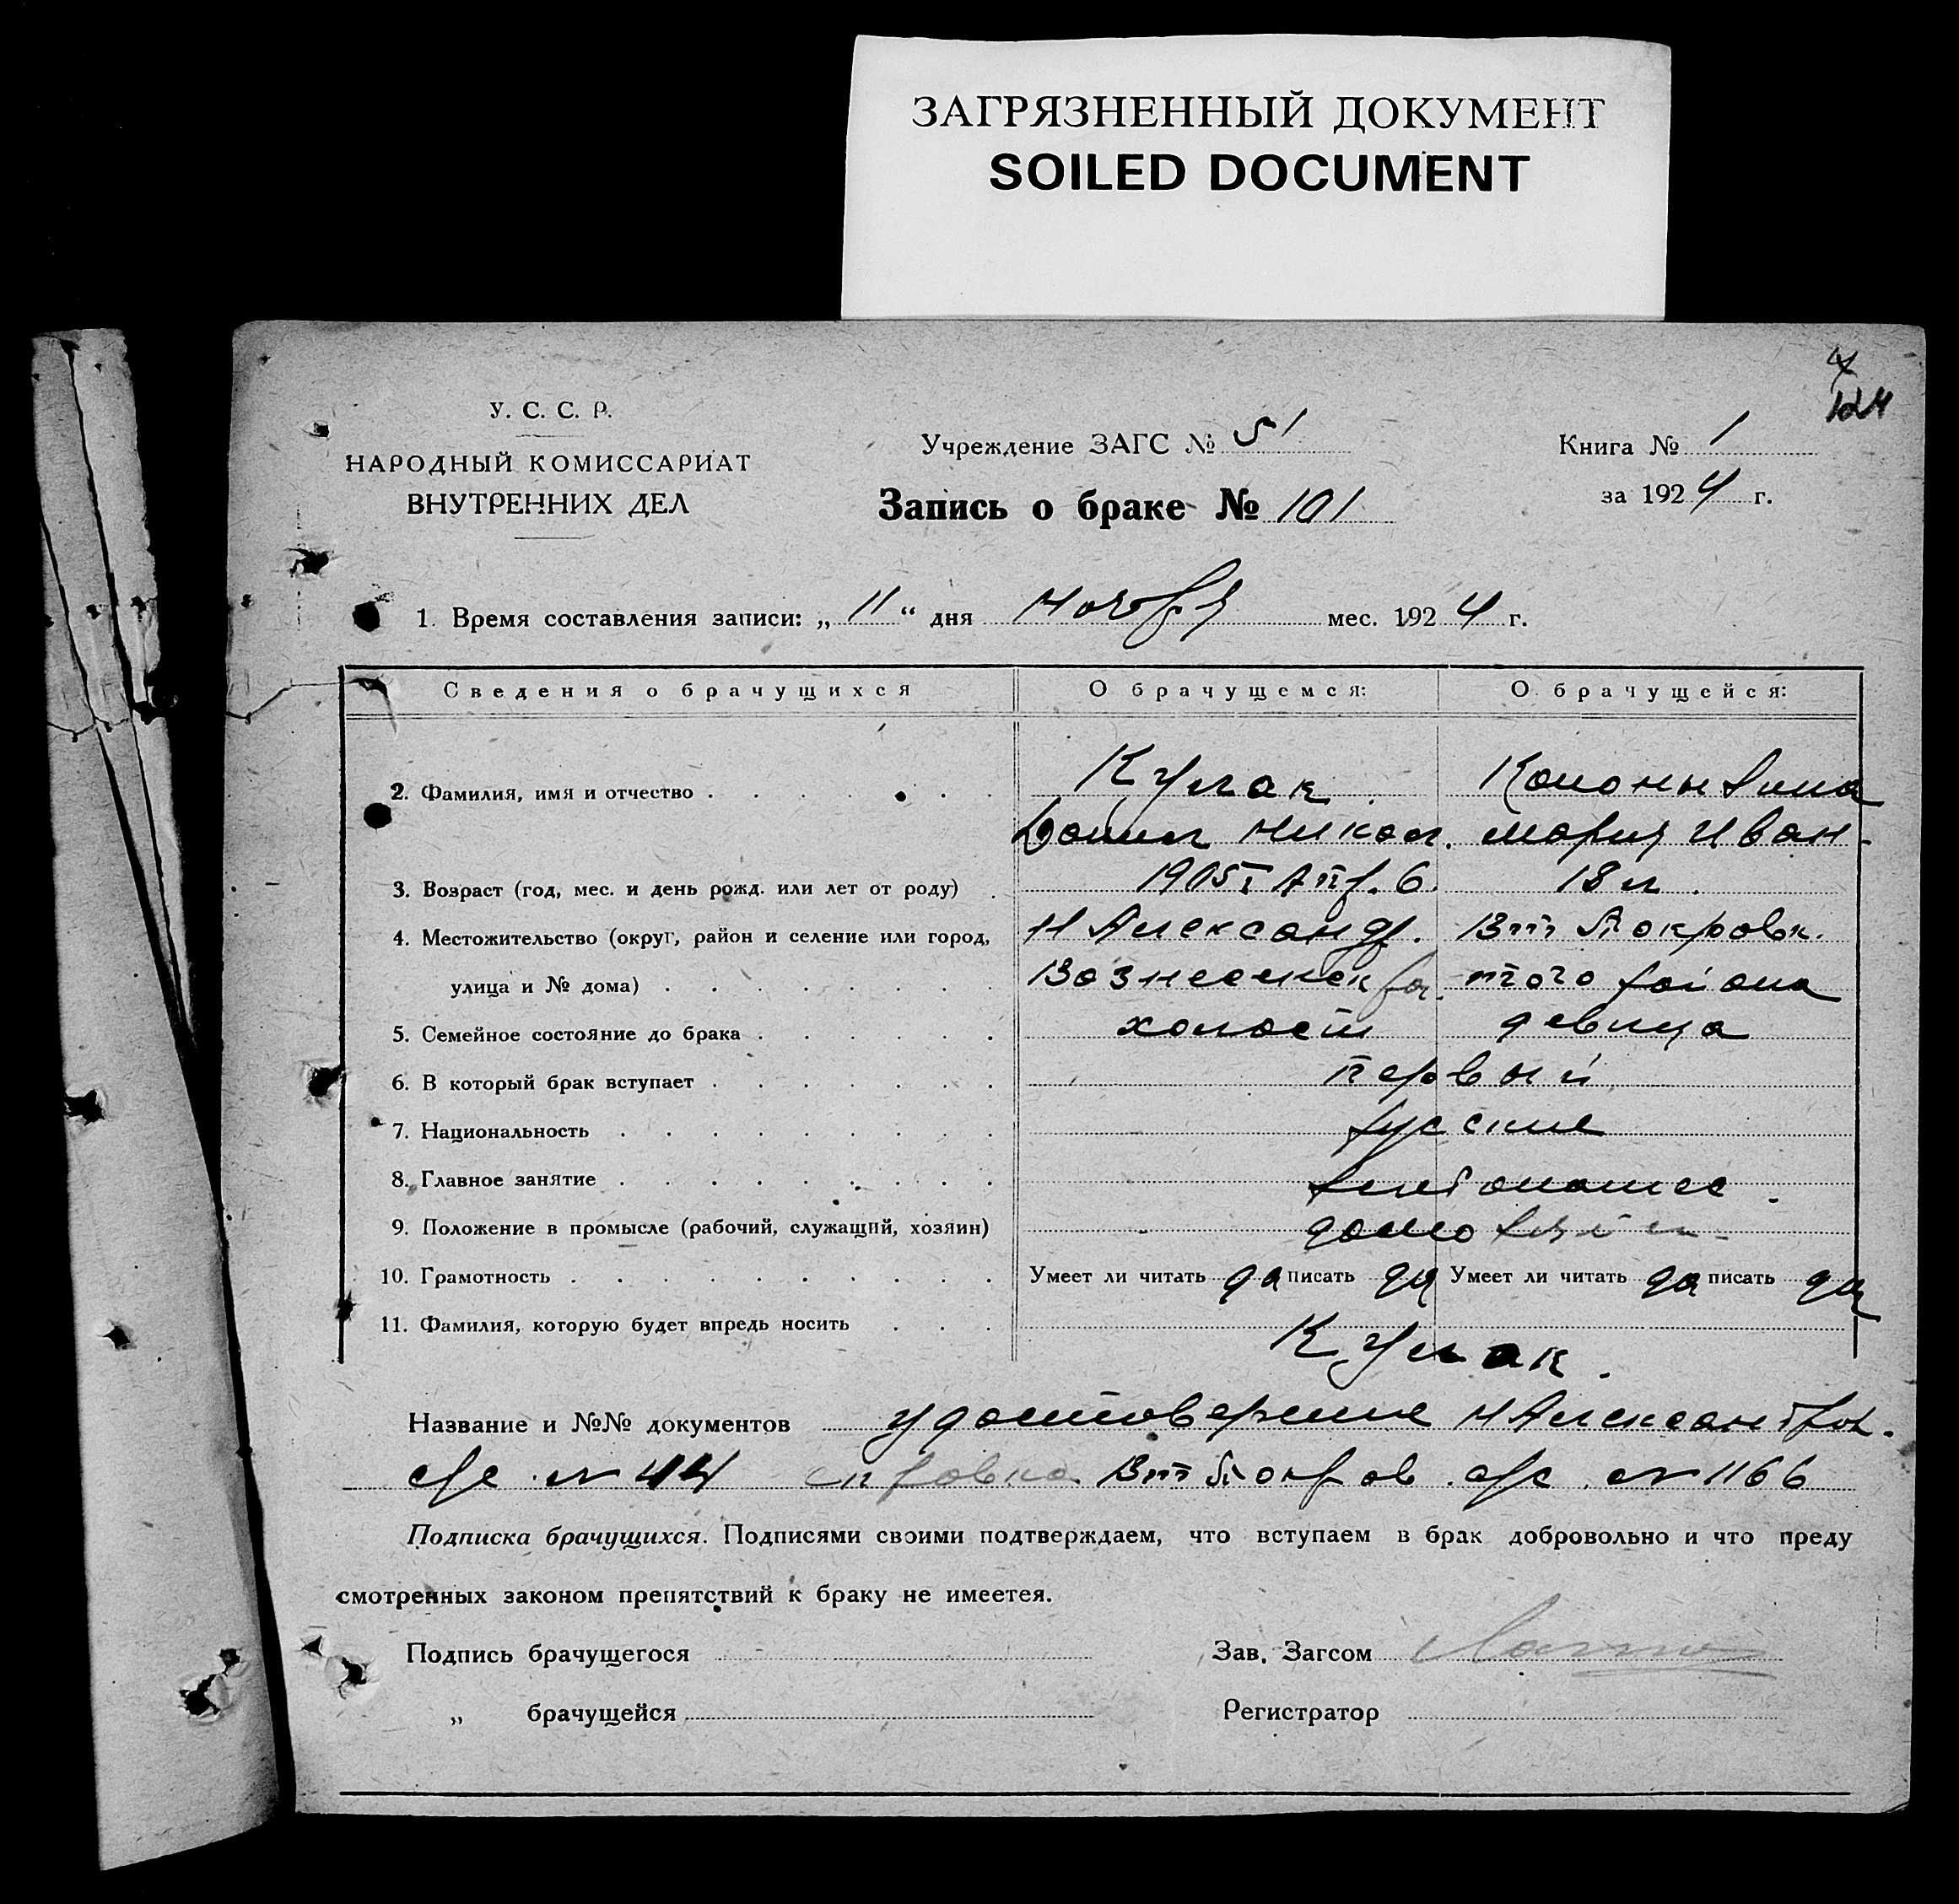 ЗАГРЯЗНЕННЫЙ ДОКУМЕНТ
SOILED DOCUMENT
У. С. С. Р.
НАРОДНЫЙ КОМИССАРИАТ
ВНУТРЕННИХ ДЕЛ
Учреждение ЗАГС № 51
Запись о браке № 101
Книга № 1
за 1924 г.
1. Время составления записи: „11“ дня ноября мес. 1924 г.
Сведения о брачущихся О брачущемся: О брачущейся:
2. Фамилия, имя и отчество Кулак
Данил Никол. Мария Иван.
3. Возраст (год, мес. и день рожд. или лет от роду) 1905 г Апр. 6. 18 л.
4. Местожительство (округ, район и селение или город, Н Александр. Вт Покровк.
улица и № дома) Вознесенск ра. того района
5. Семейное состояние до брака холост девица
6. В который брак вступает первый
7. Национальность русские
8. Главное занятие
9. Положение в промысле (рабочий, служащий, хозяин)
10. Грамотность Умеет ли читать да писать да Умеет ли читать да писать да
11. Фамилия, которую будет впредь носить Кулак.
Название и №№ документов удостоверение Н Александров.
с/с № 44 справка Вт Покров. с/с № 1166
Подписка брачущихся. Подписями своими подтверждаем, что вступаем в брак добровольно и что преду
смотренных законом препятствий к браку не имеетея.
Подпись брачущегося Зав. Загсом
„ брачущейся Регистратор